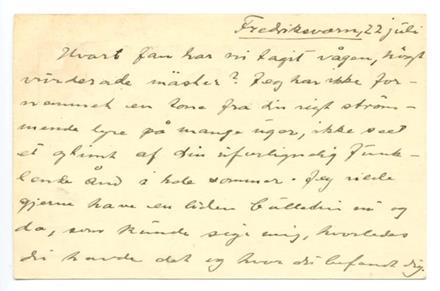 Fredriksværn, 22 juli
Hvart fan har ni tagit vägen, högt
vürderade mäster? Jeg har ikke for-
nemmet en tone fra din rigt ström-
mende lyre på mange uger, ikke seet
et glimt af din uforlignelig funk-
lende ånd i hele sommer. Jeg vilde
gjerne have en liden bülletin nü og
da, som künde sige mig, hvorledes
dü havde det og hvor dü befandt dig.